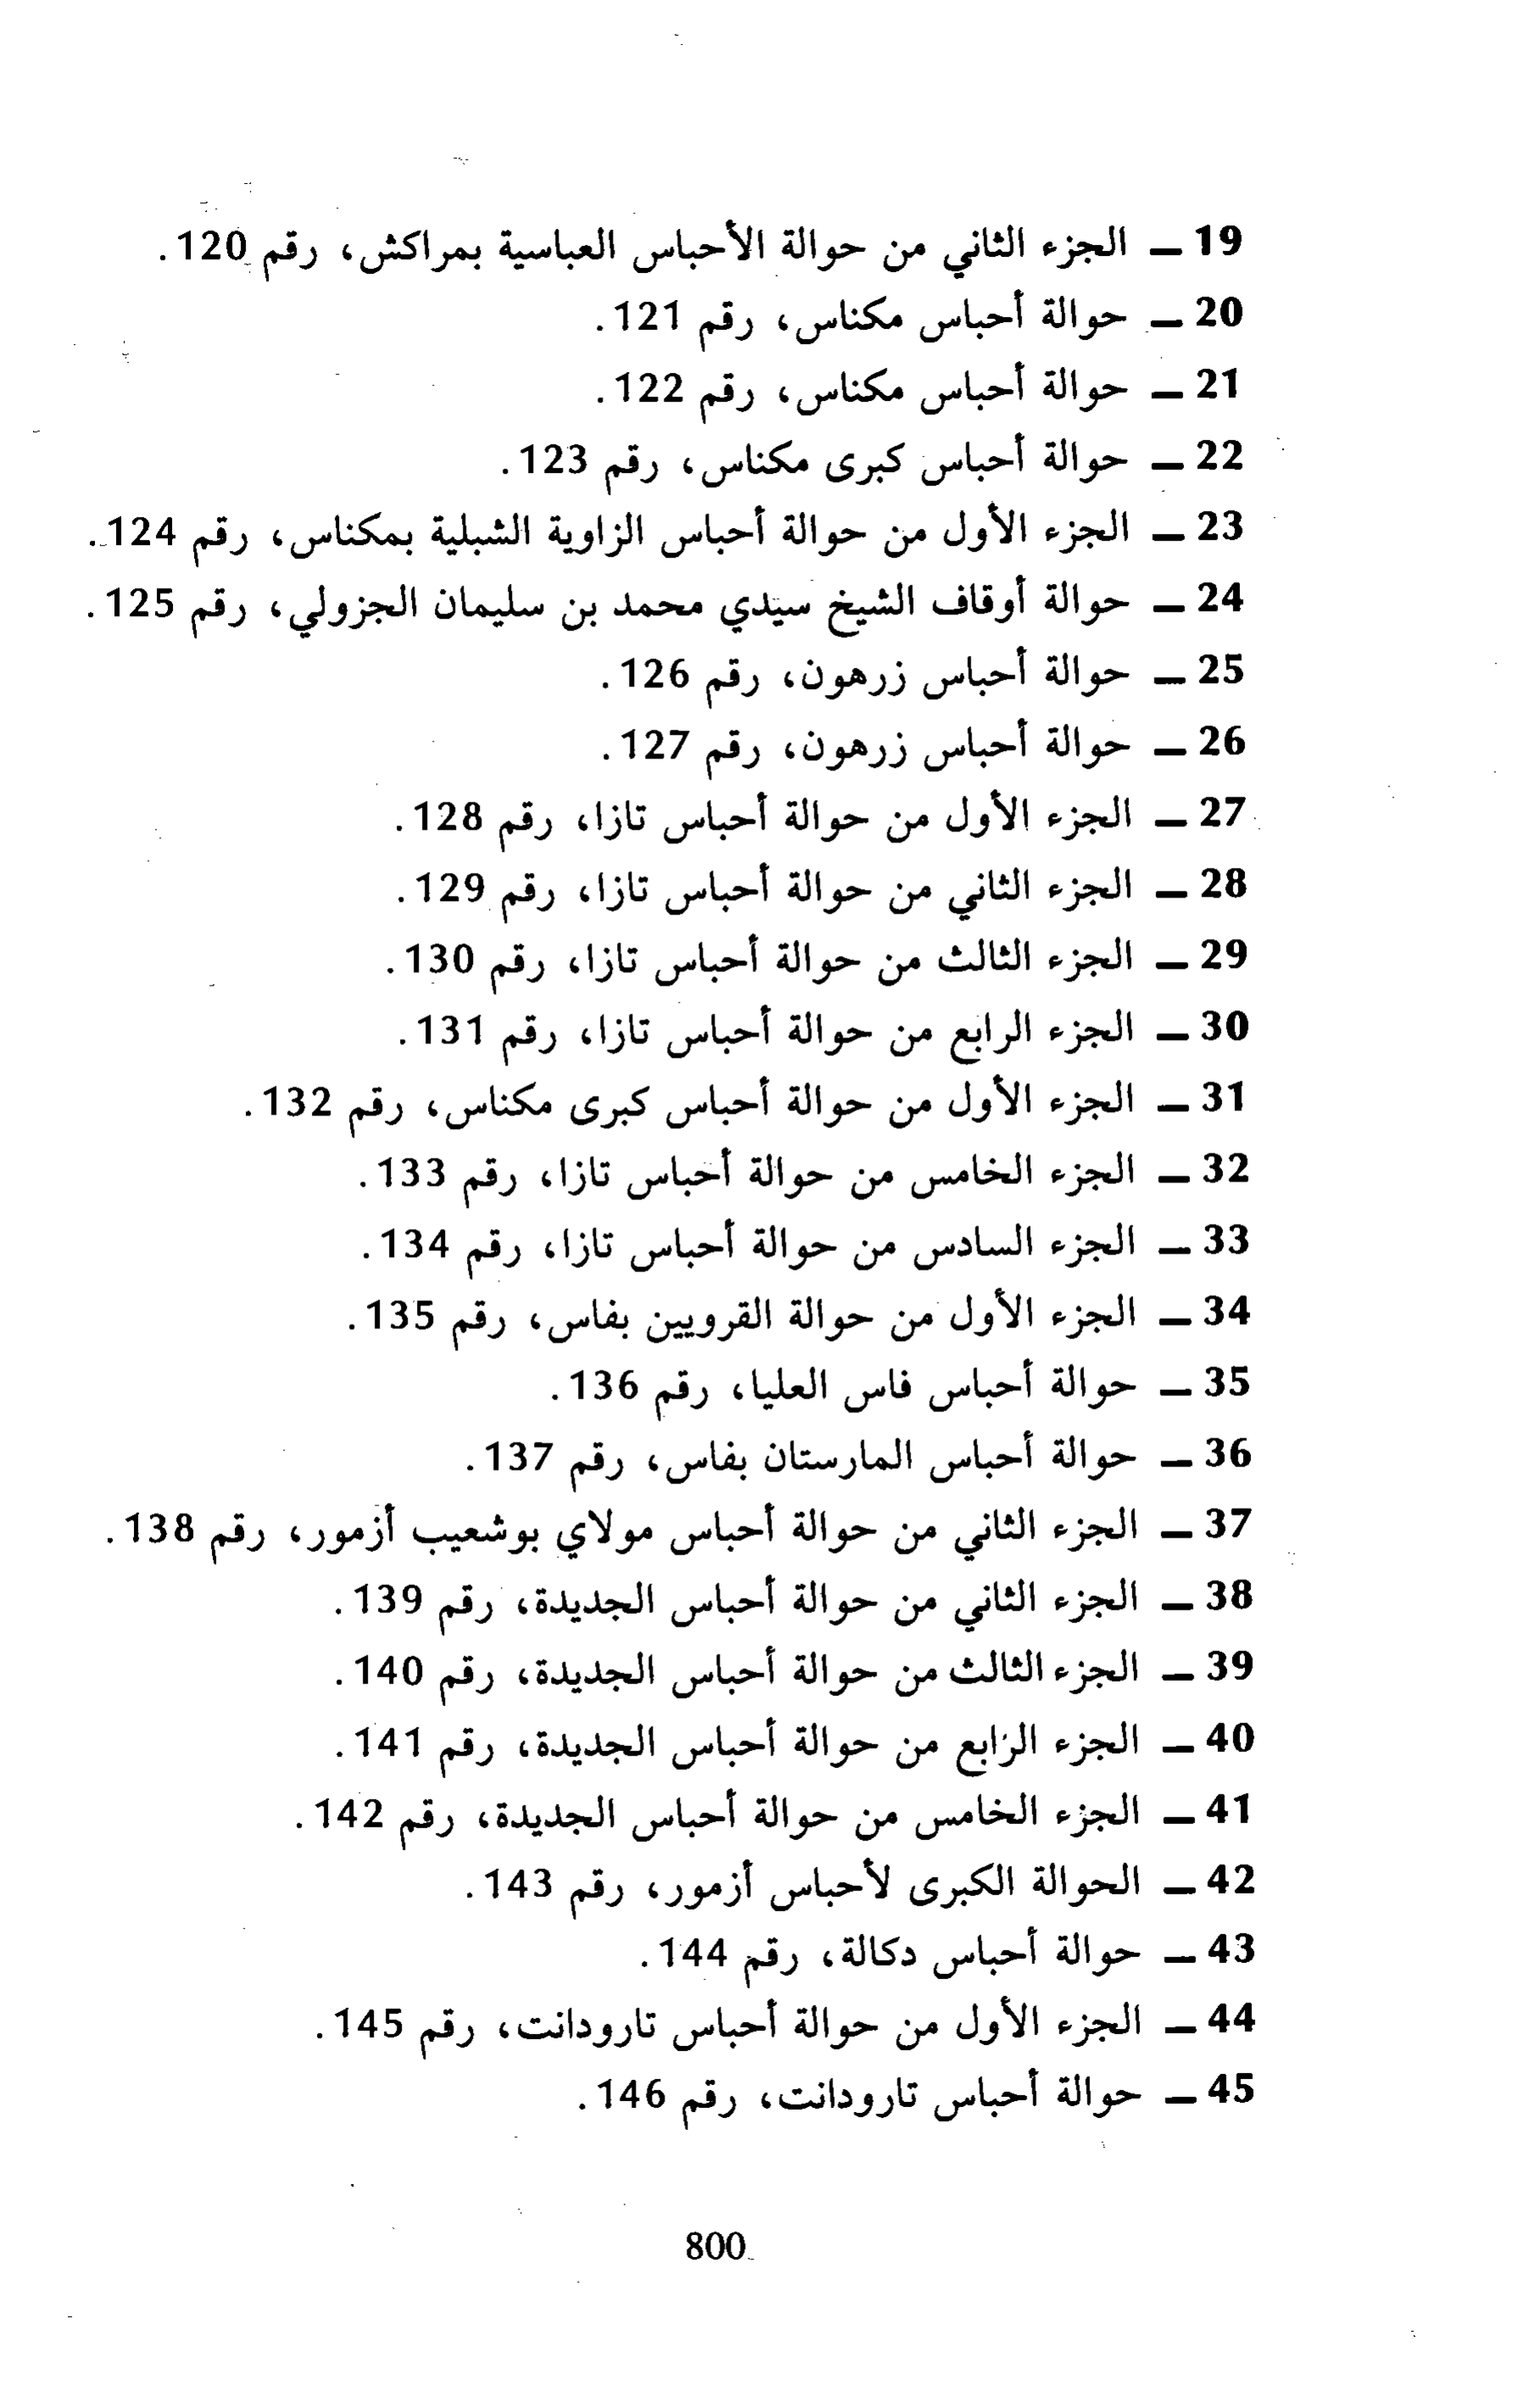 19 — الجزء الثاني من حوالة الأحباس العباسية بمراكش، رقم 120.
20 — حوالة أحباس مكناس، رقم 121.
21 — حوالة أحباس مكناس، رقم 122.
22 — حوالة أحباس كبرى مكناس، رقم 123.
23 — الجزء الأول من حوالة أحباس الزاوية الشبلية بمكناس، رقم 124.
24 — حوالة أوقاف الشيخ سيدي محمد بن سليمان الجزولي، رقم 125.
25 — حوالة أحباس زرهون، رقم 126.
26 — حوالة أحباس زرهون، رقم 127.
27 — الجزء الأول من حوالة أحباس تازا، رقم 128.
28 — الجزء الثاني من حوالة أحباس تازا، رقم 129.
29 — الجزء الثالث من حوالة أحباس تازا، رقم 130.
30 — الجزء الرابع من حوالة أحباس تازا، رقم 131.
31 — الجزء الأول من حوالة أحباس كبرى مكناس، رقم 132.
32 — الجزء الخامس من حوالة أحباس تازا، رقم 133.
33 — الجزء السادس من حوالة أحباس تازا، رقم 134.
34 — الجزء الأول من حوالة القرويين بفاس، رقم 135.
35 — حوالة أحباس فاس العليا، رقم 136.
36 — حوالة أحباس المارستان بفاس، رقم 137.
37 — الجزء الثاني من حوالة أحباس مولاي بوشعيب أزمور، رقم 138.
38 — الجزء الثاني من حوالة أحباس الجديدة، رقم 139.
39 — الجزء الثالث من حوالة أحباس الجديدة، رقم 140.
40 — الجزء الرابع من حوالة أحباس الجديدة، رقم 141.
41 — الجزء الخامس من حوالة أحباس الجديدة، رقم 142.
42 — الحوالة الكبرى لأحباس أزمور، رقم 143.
43 — حوالة أحباس دكالة، رقم 144.
44 — الجزء الأول من حوالة أحباس تارودانت، رقم 145.
45 — حوالة أحباس تارودانت، رقم 146.
800